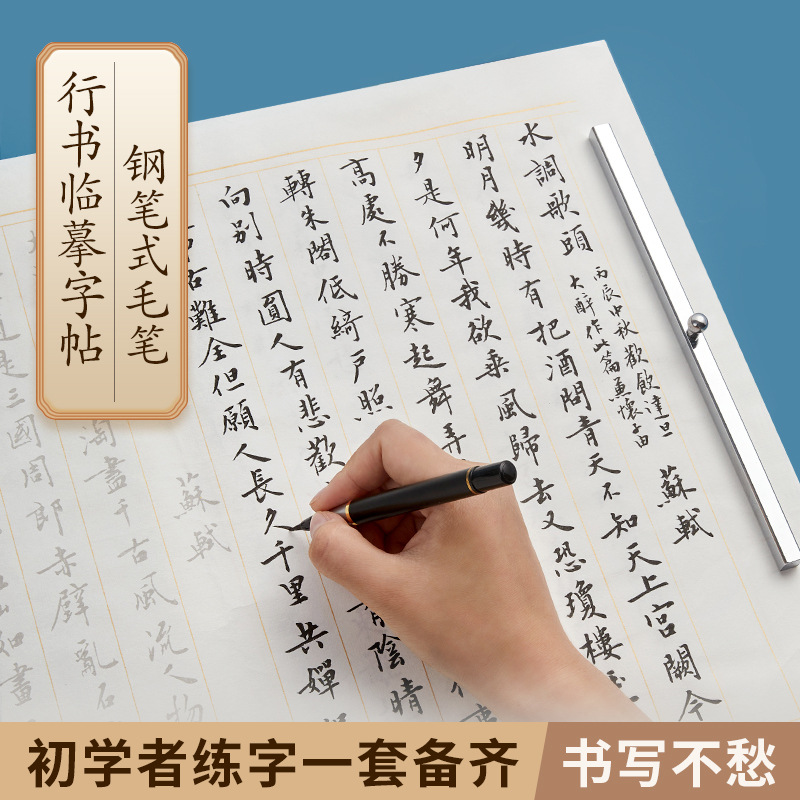 行书临摹字帖
钢笔式毛笔
水調歌頭
丙辰中秋歡飲達旦
大醉作此篇兼懷子由
蘇軾
明月幾時有把酒問青天不知天上宮闕今
夕是何年我欲乘風歸去又恐瓊樓
高處不勝寒起舞弄
轉朱閣低綺戶照
向別時圓人有悲歡
陰晴
古難全但願人長久千里共嬋
蘇軾
淘盡千古風流人物
是三國周郎赤壁亂石
如畫
初学者练字一套备齐
书写不愁